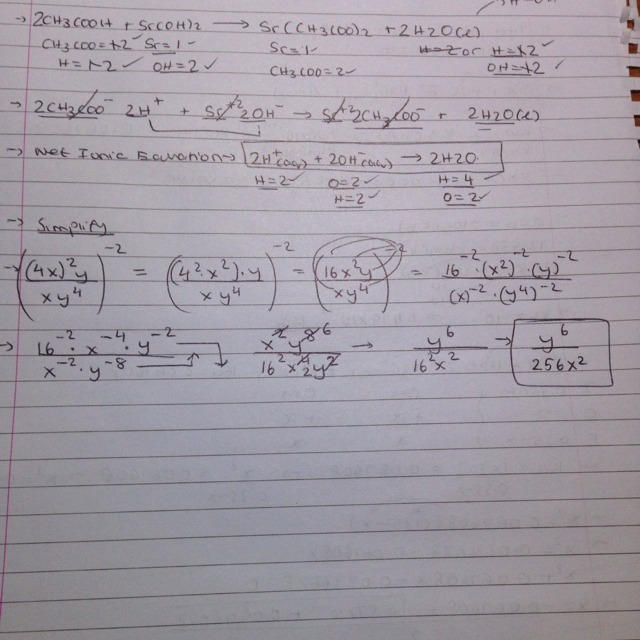 → 2CH3COOH + Sr(OH)2 ⟶ Sr(CH3COO)2 + 2H2O(l)
CH3COO=1 2✓ Sr=1✓ Sr=1✓ H=2 or H=1 2✓
H=1 2✓ OH=2✓ CH3COO=2✓ OH=1 2✓
→ 2CH3COO⁻ 2H⁺ + Sr⁺² 2OH⁻ → Sr⁺² 2CH3COO⁻ + 2H2O(l)
→ Net Ionic Equation → 2H⁺(aq) + 2OH⁻(aq) → 2H2O
H=2✓ O=2✓ H=4✓
H=2✓ O=2✓
→ Simplify
→ ((4x)²y / xy⁴)⁻² = ((4²·x²)·y / xy⁴)⁻² = (16x²y / xy⁴)⁻² = 16⁻²·(x²)⁻²·(y)⁻² / (x)⁻²·(y⁴)⁻²
→ 16⁻²·x⁻⁴·y⁻² / x⁻²·y⁻⁸ x²y⁸ ⁶ / 16²x⁴ ²y² → y⁶ / 16²x² → y⁶ / 256x²